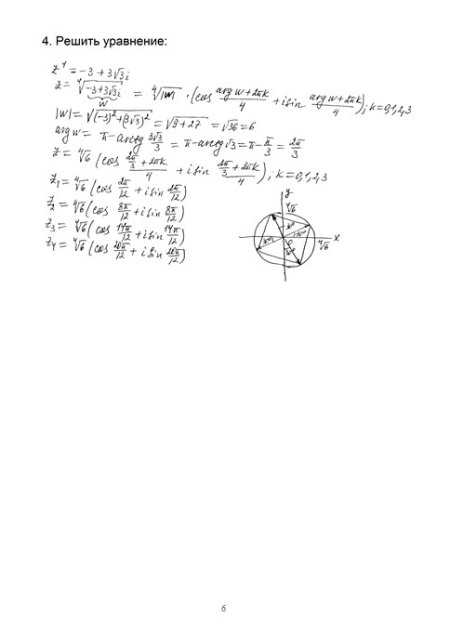 4. Решить уравнение:
z⁴ = -3 + 3√3i
z = ⁴√(-3+3√3i) = ⁴√|w| · (cos (arg w + 2πk)/4 + i sin (arg w + 2πk)/4); k=0,1,2,3
w
|w| = √((-3)²+(3√3)²) = √(9+27) = √36 = 6
arg w = π - arctg 3√3/3 = π - arctg √3 = π - π/3 = 2π/3
z = ⁴√6 (cos (2π/3 + 2πk)/4 + i sin (2π/3 + 2πk)/4); k=0,1,2,3
z₁ = ⁴√6 (cos 2π/12 + i sin 2π/12)
z₂ = ⁴√6 (cos 8π/12 + i sin 8π/12)
z₃ = ⁴√6 (cos 14π/12 + i sin 14π/12)
z₄ = ⁴√6 (cos 20π/12 + i sin 20π/12)
y
⁴√6
x
0
⁴√6
6